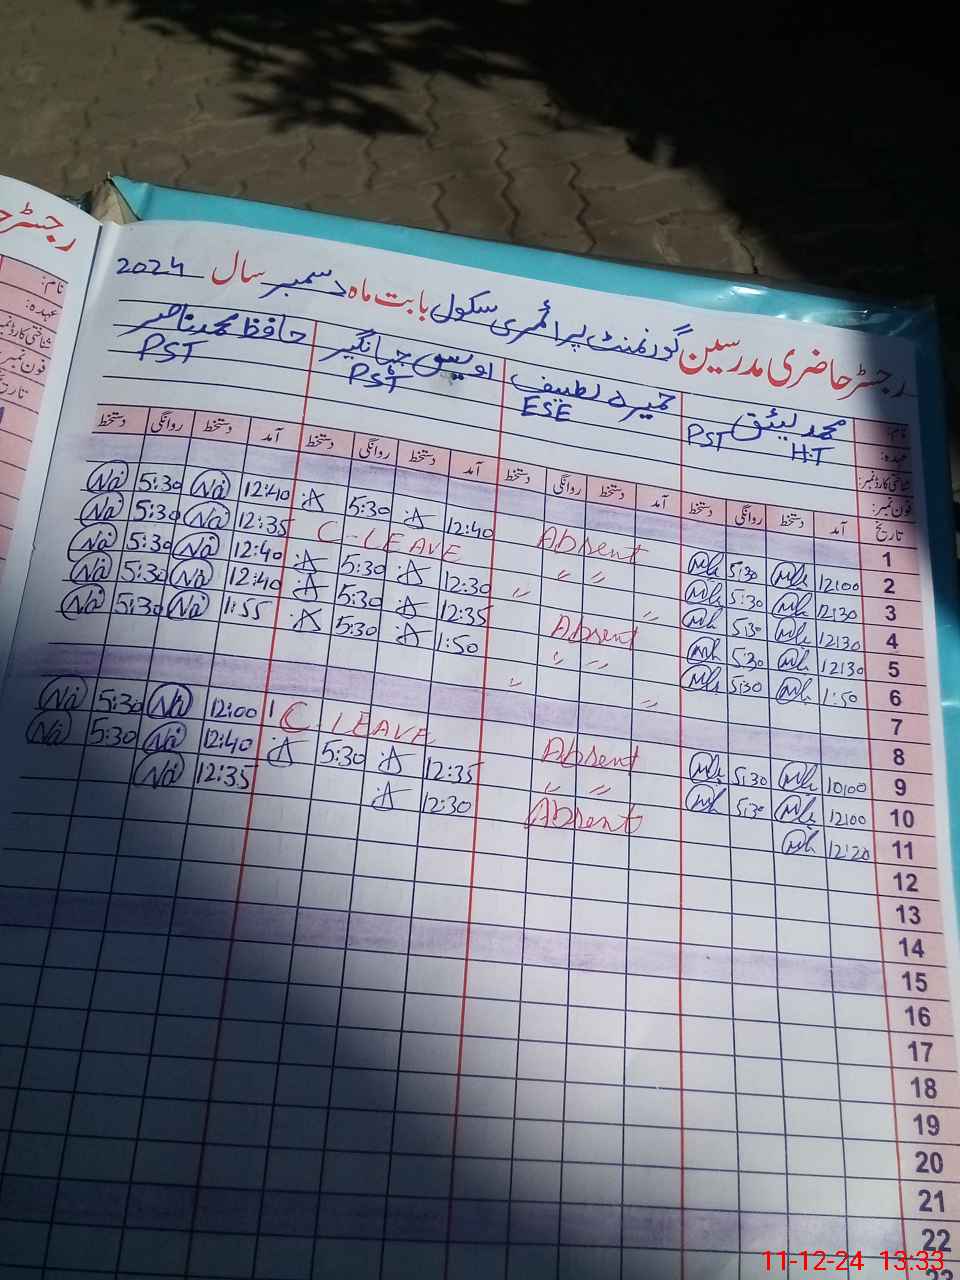 رجسٹر حاضری مدرسین گورنمنٹ پرائمری سکول بابت ماہ دسمبر سال 2024
نام: محمد لئیق حمیرہ لطیف اویس جہانگیر حافظ محمد ناصر
عہدہ: PST H.T ESE PST PST
شناختی کارڈ نمبر:
فون نمبر:
تاریخ آمد دستخط روانگی دستخط آمد دستخط روانگی دستخط آمد دستخط روانگی دستخط آمد دستخط روانگی دستخط
1
2 12:00 5:30 Absent 12:40 5:30 12:40 Na 5:30 Na
3 12:30 5:30 " " C-LEAVE 12:35 Na 5:30 Na
4 12:30 5:30 " " 12:30 5:30 12:40 Na 5:30 Na
5 12:30 5:30 Absent 12:35 5:30 12:40 Na 5:30 Na
6 1:50 5:30 " " 1:50 5:30 1:55 Na 5:30 Na
7 " "
8
9 10:00 5:30 Absent C-LEAVE 12:00 Na 5:30 Na
10 12:00 5:30 " " 12:35 5:30 12:40 Na 5:30 Na
11 12:20 Absent 12:30 12:35 Na
12
13
14
15
16
17
18
19
20
21
22
23
رجسٹر
نام:
عہدہ:
شناختی کارڈ نمبر
فون نمبر:
تاریخ
11-12-24 13:33